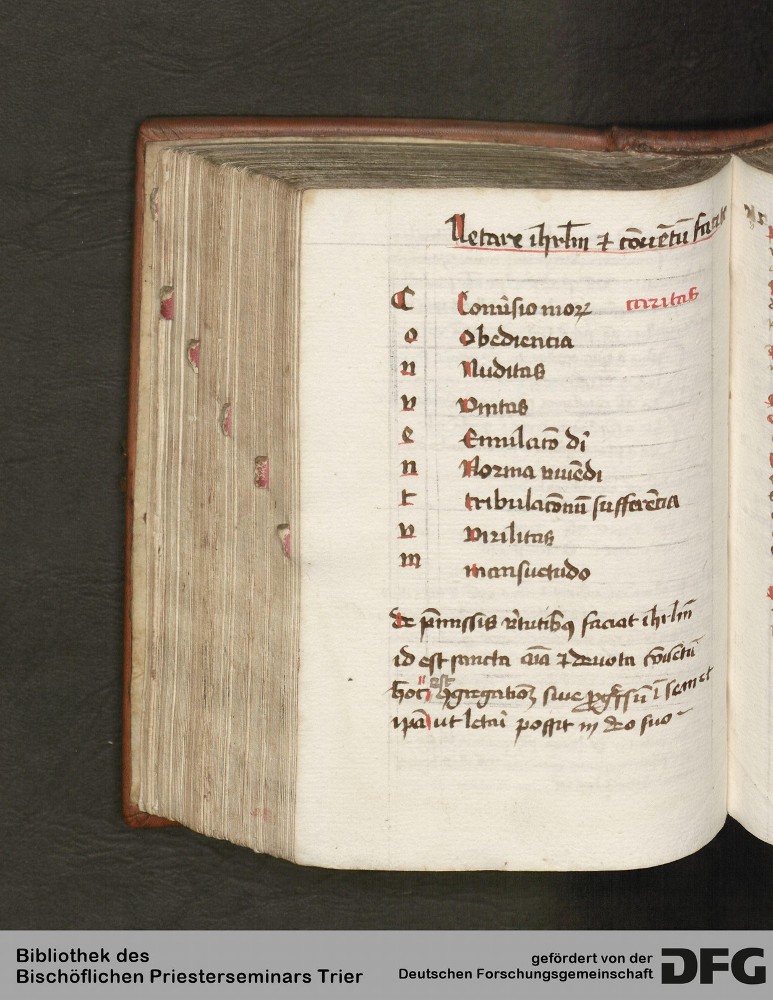 Letare ihrlm ⁊ cōuētū facite
C Conuersio moꝝ caritas
o Obediencia
n Nuditas
v Vnitas
e Emulacō di
n Norma viuēdi
t tribulacōnū sufferēcia
v virilitas
m mansuetudo
de p̄missis v̓tutibꝫ faciat ihrlm
id est sancta aīa ⁊ deuota cōuētū
hoc est ꝯgregationē siue ī semet
ip̄a ut letari possit in deo suo
Bibliothek des
Bischöflichen Priesterseminars Trier
gefördert von der
Deutschen Forschungsgemeinschaft DFG